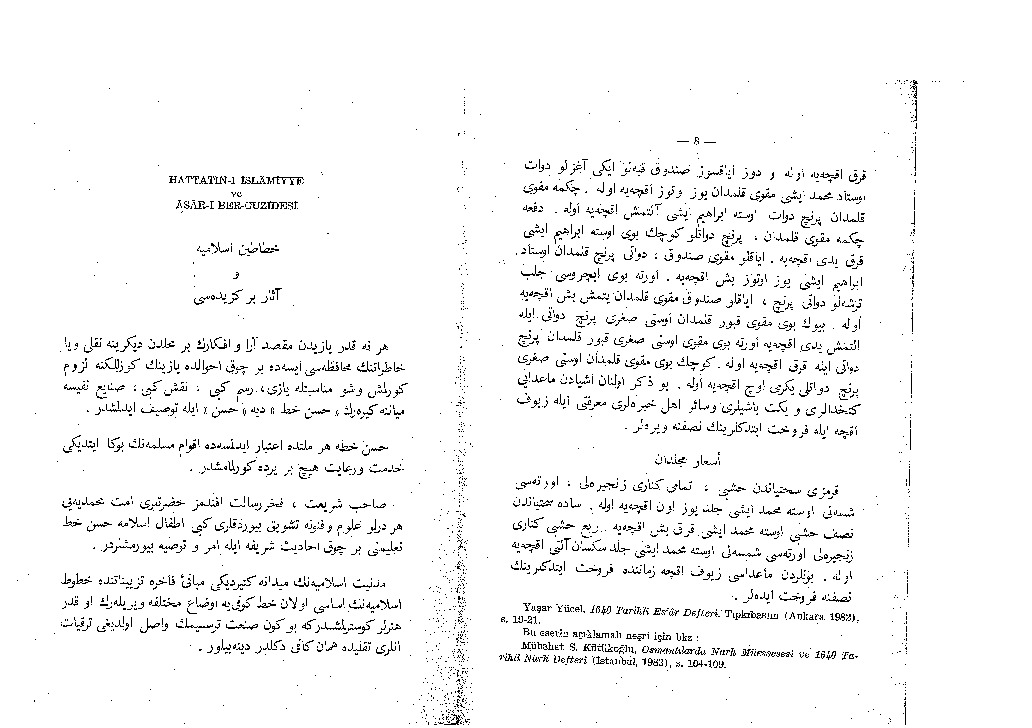 — 8 —
قرق اقچه‌یه اوله و دوز ایاقسوز صندوق قبه‌لو ایکی آغزلو دوات
اوستاد محمد ایشی مقوی قلمدان یوز اوتوز اقچه‌یه اوله . چکمه مقوی
قلمدان پرنچ دوات اوسته ابراهیم ایشی آلتمش اقچه‌یه اوله . دفعه
چکمه مقوی قلمدان ، پرنچ دواتلو کوچك بوی اوسته ابراهیم ایشی
قرق یدی اقچه‌یه . ایاقلو مقوی صندوق ، دواتی پرنچ قلمدان اوستاد
ابراهیم ایشی یوز اوتوز بش اقچه‌یه . اورته بوی ایچروسی جلب
ترشه‌لو دواتی پرنچ ، ایاقلو صندوق مقوی قلمدان یتمش بش اقچه‌یه
اوله . بیوك بوی مقوی قبور قلمدان اوستی صغری پرنچ دواتی ایله
التمش یدی اقچه‌یه اورته بوی مقوی اوستی صغری قبور قلمدان پرنچ
دواتی ایله قرق اقچه‌یه اوله . کوچك بوی مقوی قلمدان اوستی صغری
پرنچ دواتلی یکرمی اوچ اقچه‌یه اوله . بو ذکر اولنان اشیادن ماعدایی
کتخدالری و یکت باشیلری وسائر اهل خبره‌لری معرفتی ایله زیوف
اقچه ایله فروخت ایتدکلرینك نصفنه ویره‌لر .
أسعار مجلدان
قرمزی سختیاندن حشبی ، تمامی کناری زنجیره‌لی ، اورته‌سی
شمسه‌لی اوسته محمد ایشی جلد یوز اون اقچه‌یه اوله . ساده سختیاندن
نصف حشبی اوسته محمد ایشی قرق بش اقچه‌یه . ربع حشبی کناری
زنجیره‌لی اورته‌سی شمسه‌لی اوسته محمد ایشی جلد سکسان آلتی اقچه‌یه
اوله . بونلردن ماعداسی زیوف اقچه زماننده فروخت ایتدکلرینك
نصفنه فروخت ایده‌لر .
Yaşar Yücel, 1640 Tarihli Es'âr Defteri, Tıpkıbasım (Ankara 1982),
s. 19-21.
Bu eserin açıklamalı neşri için bkz :
Mübahat S. Kütükoğlu, Osmanlılarda Narh Müessesesi ve 1640 Ta-
rihli Narh Defteri (İstanbul, 1983), s. 104-109.
HATTATİN-I İSLÂMİYYE
ve
ÂSÂR-I BER-GUZİDESİ
خطاطین اسلامیه
و
آثار بر کزیده‌سی
هر نه قدر یازیدن مقصد آرا و افکارك بر محلدن دیکرینه نقلی ویا
خاطراتنك محافظه‌سی ایسه‌ده بر چوق احوالده یازینك کوزللکنه لزوم
کورلمش وشو مناسبتله یازی، رسم کبی ، نقش کبی ، صنایع نفیسه
میاننه کیره‌رك « حسن خط » دیه « حسن » ایله توصیف ایدلمشدر .
حسن خطه هر ملتده اعتبار ایدلسه‌ده اقوام مسلمه‌نك بوکا ایتدیکی
خدمت ورعایت هیچ بر یرده کورلمامشدر .
صاحب شریعت ، فخر رسالت افندمز حضرتلری امت محمدیه‌یی
هر درلو علوم و فنونه تشویق بیوردقلری کبی اطفال اسلامه حسن خط
تعلیمنی بر چوق احادیث شریفه ایله امر و توصیه بیورمشلردر .
مدنیت اسلامیه‌نك میدانه کتیردیکی مبانئ فاخره تزییناتنده خطوط
اسلامیه‌نك اساسی اولان خط کوفی‌یه اوضاع مختلفه ویریله‌رك او قدر
هنرلر کوسترلمشدرکه بوکون صنعت ترسیمك واصل اولدیغی ترقیات
انلری تقلیده همان کافی دکلدر دینه‌بیلور .